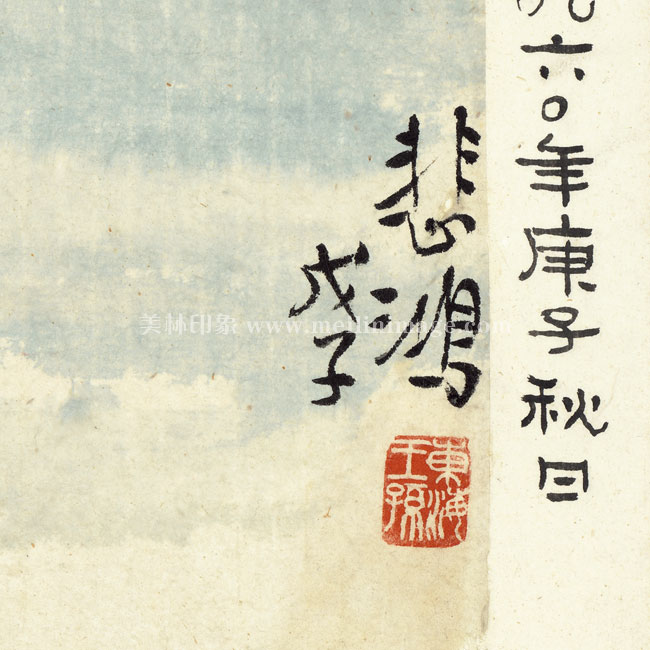 六〇年庚子秋日
悲鴻
戊子
東海王孫
美林印象 www.meilinimage.com